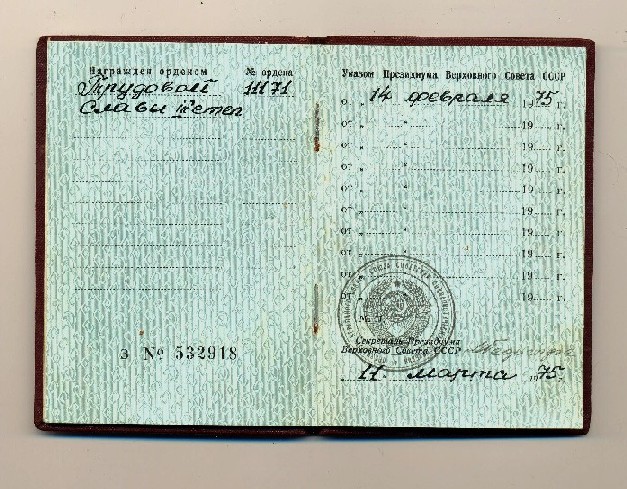 Награжден орденом № ордена
Трудовой 11171
Славы III степ
З № 532918
Указом Президиума Верховного Совета СССР
от „ 14 „ февраля 1975 г.
от „ „ 19 г.
от „ „ 19 г.
от „ „ 19 г.
от „ „ 19 г.
от „ „ 19 г.
от „ „ 19 г.
от „ „ 19 г.
от „ „ 19 г.
от 19 г.
Секретарь Президиума
Верховного Совета СССР
11 марта 1975 г.